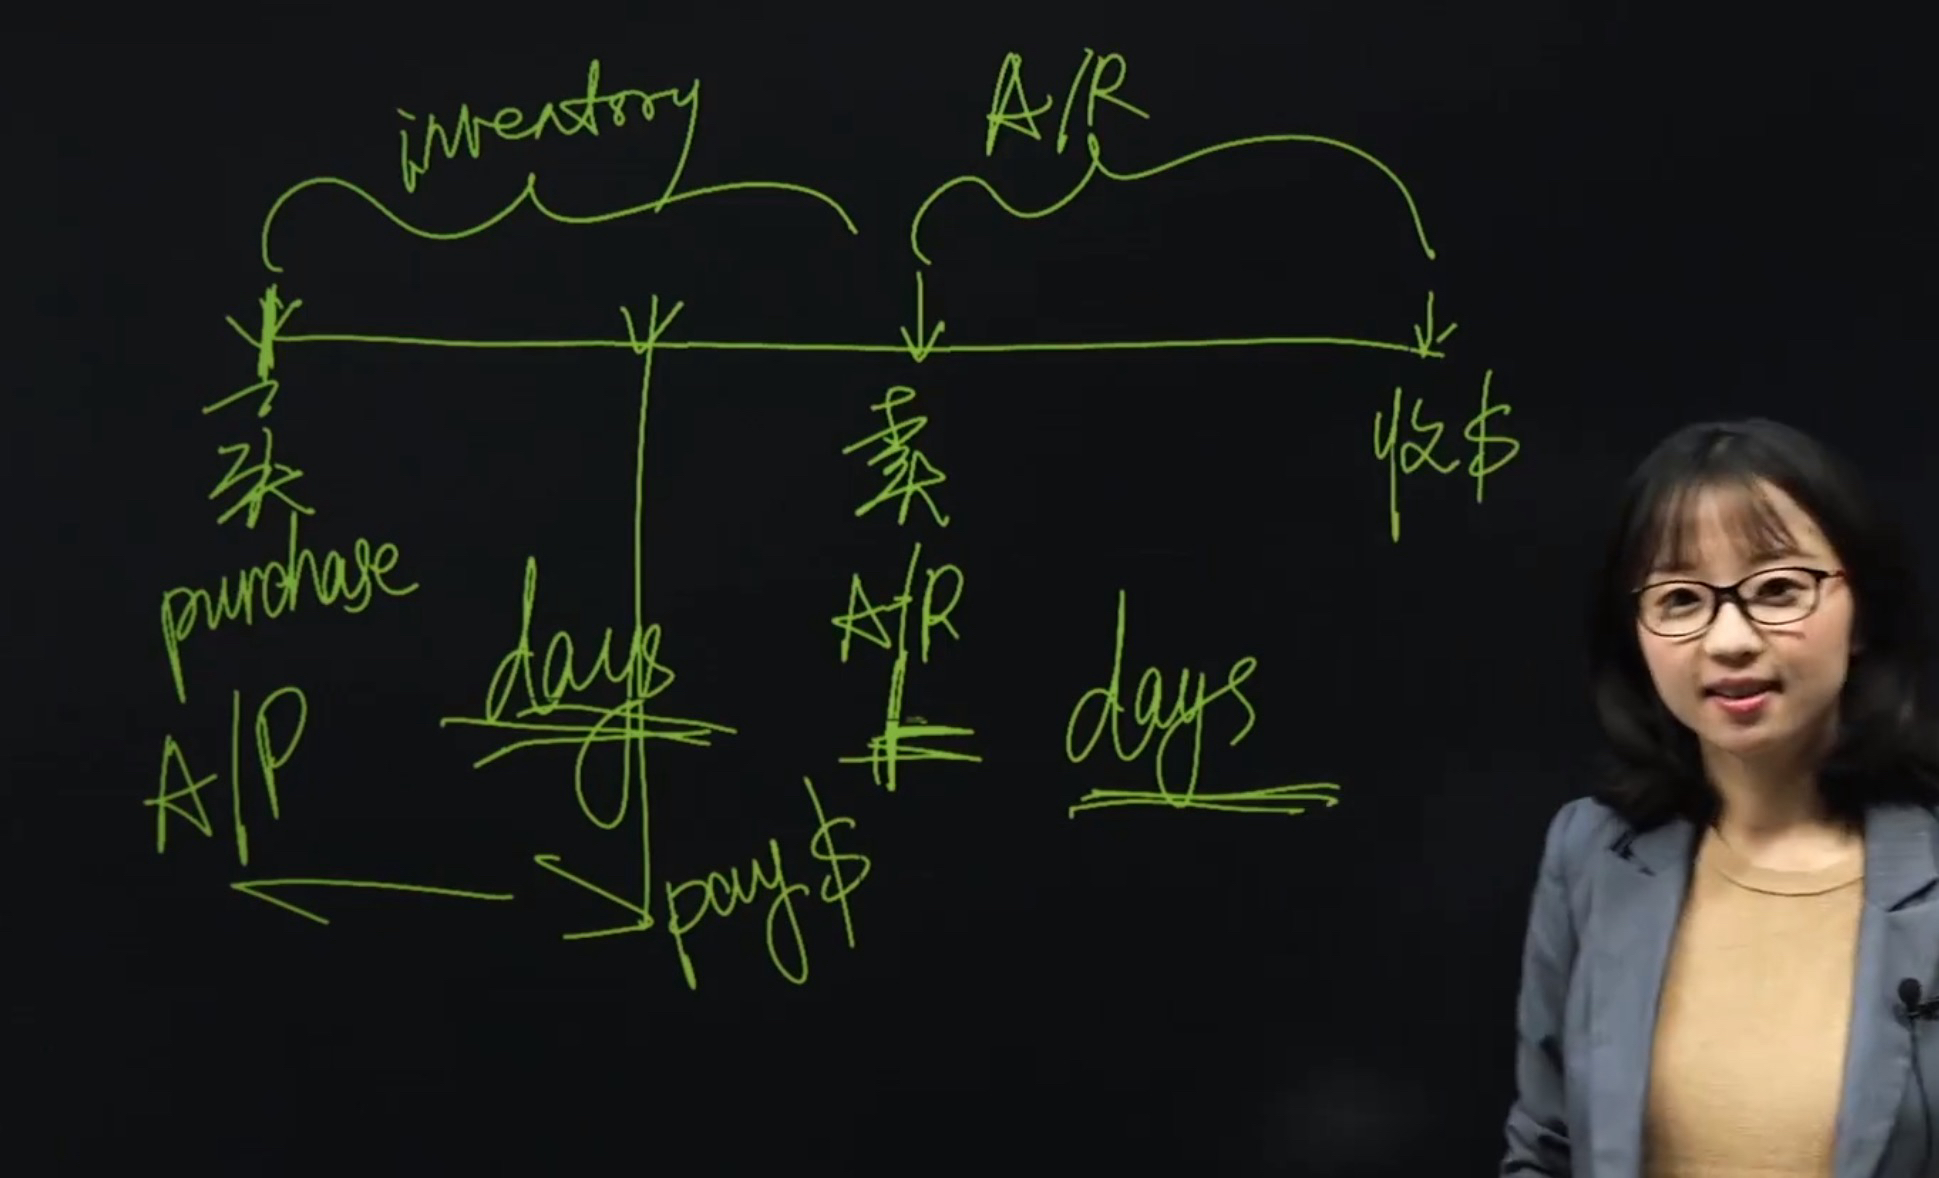 inventory
A/R
买
purchase
A/P
days
pay $
卖
A/R
days
收$